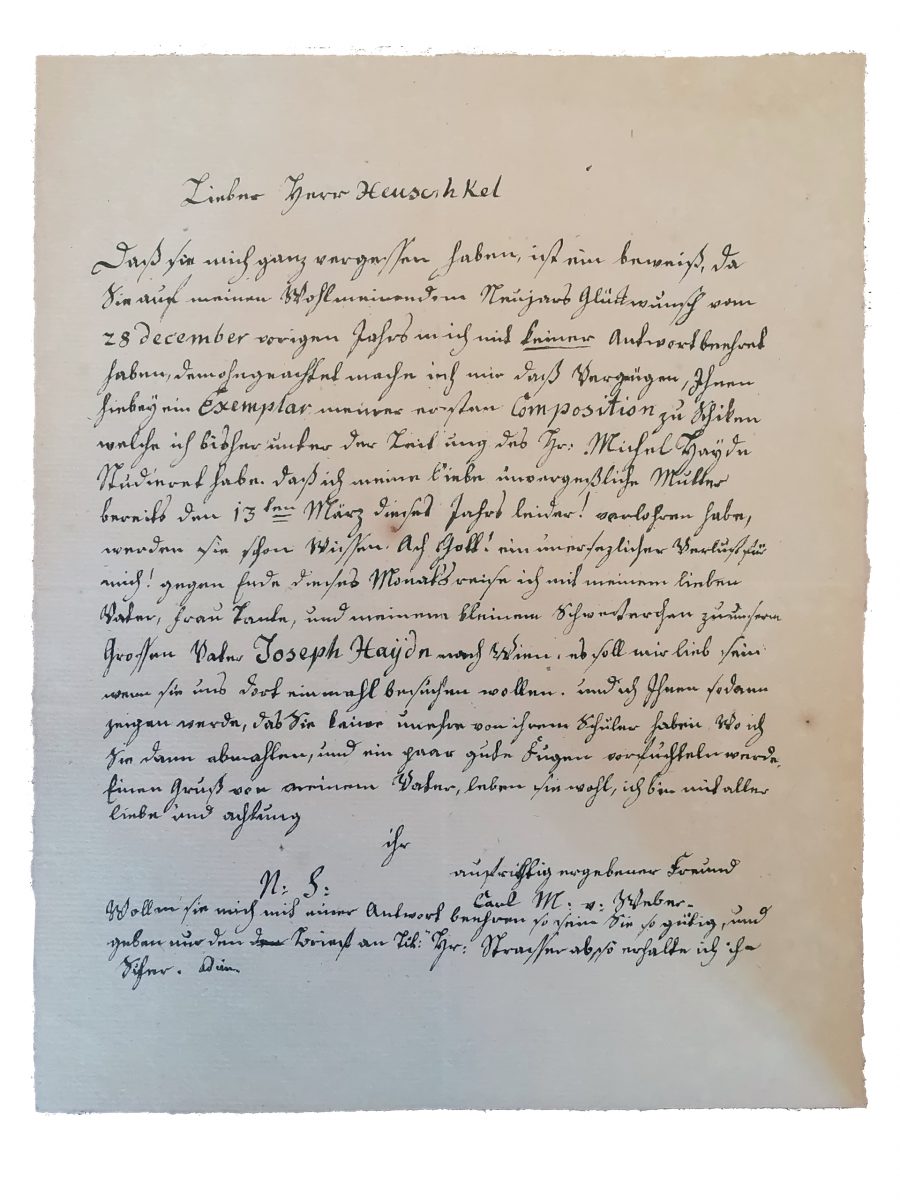 Lieber Herr Heuschkel
Daß sie mich ganz vergessen haben, ist ein beweiß, da
Sie auf meinen Wohlmeinendem Neujars Glückwunsch vom
28 december vorigen Jahrs mich mit keiner Antwort beehret
haben, demohngeachtet mache ich mir daß Vergnügen, Ihnen
hiebey ein Exemplar meiner ersten Composition zu Schiken
welche ich bisher unter der Leitung des Hr: Michel Haydn
Studieret habe. daß ich meine liebe unvergeßliche Mutter
bereits den 13ten März dieses Jahrs leider! verlohren habe,
werden sie schon Wissen. Ach Gott! ein unersezlicher Verlust für
mich! gegen Ende dieses Monats reise ich mit meinem lieben
Vater, Frau Tante, und meinem kleinem Schwesterchen zu unserm
Grossen Vater Joseph Haydn nach Wien. es soll mir lieb sein
wenn sie uns dort einmahl besuchen wollen. und ich Ihnen sodann
zeigen werde, das Sie keine unehre von ihrem Schüler haben. Wo ich
Sie dann abmahlen, und ein paar gute Fugen vorfuchteln werde.
Einen Gruß von meinem Vater, leben sie wohl, ich bin mit aller
liebe und achtung
ihr
aufrichtig ergebener Freund
Carl M: v: Weber.
N: S:
Wollen sie mich mit einer Antwort beehren so sein Sie so gütig, und
geben nur den den brief an Tit: Hr: Strasser ab, so erhalte ich ihn
Sicher. adieu